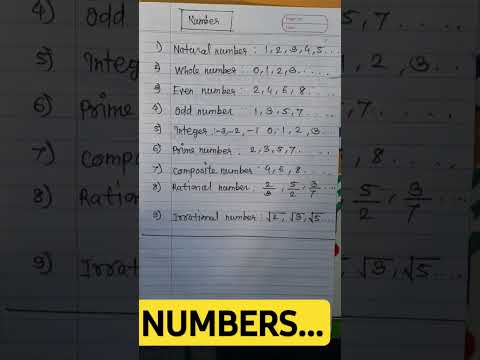 Number
1) Natural number : 1, 2, 3, 4, 5. ...
2) Whole number : 0, 1, 2, 3. ....
3) Even number : 2, 4, 6, 8. ....
4) Odd number 1, 3, 5, 7. ....
5) Integer :-3,-2, -1 0, 1, 2, 3.
6) Prime number : 2, 3, 5, 7. ....
7) Composite number : 4, 6, 8. ....
8) Rational number : 2/3, 5/2, 3/7 ....
9) Irrational number : √2, √3, √5 ...
4) Odd
5) Integ
6) Prime
7) Compos
8) Ratio
9) Irrat
5, 7. .
, 2, 3
7. . . .
, 8. . .
5/2, 3/7 ...
√3, √5 ...
NUMBERS...